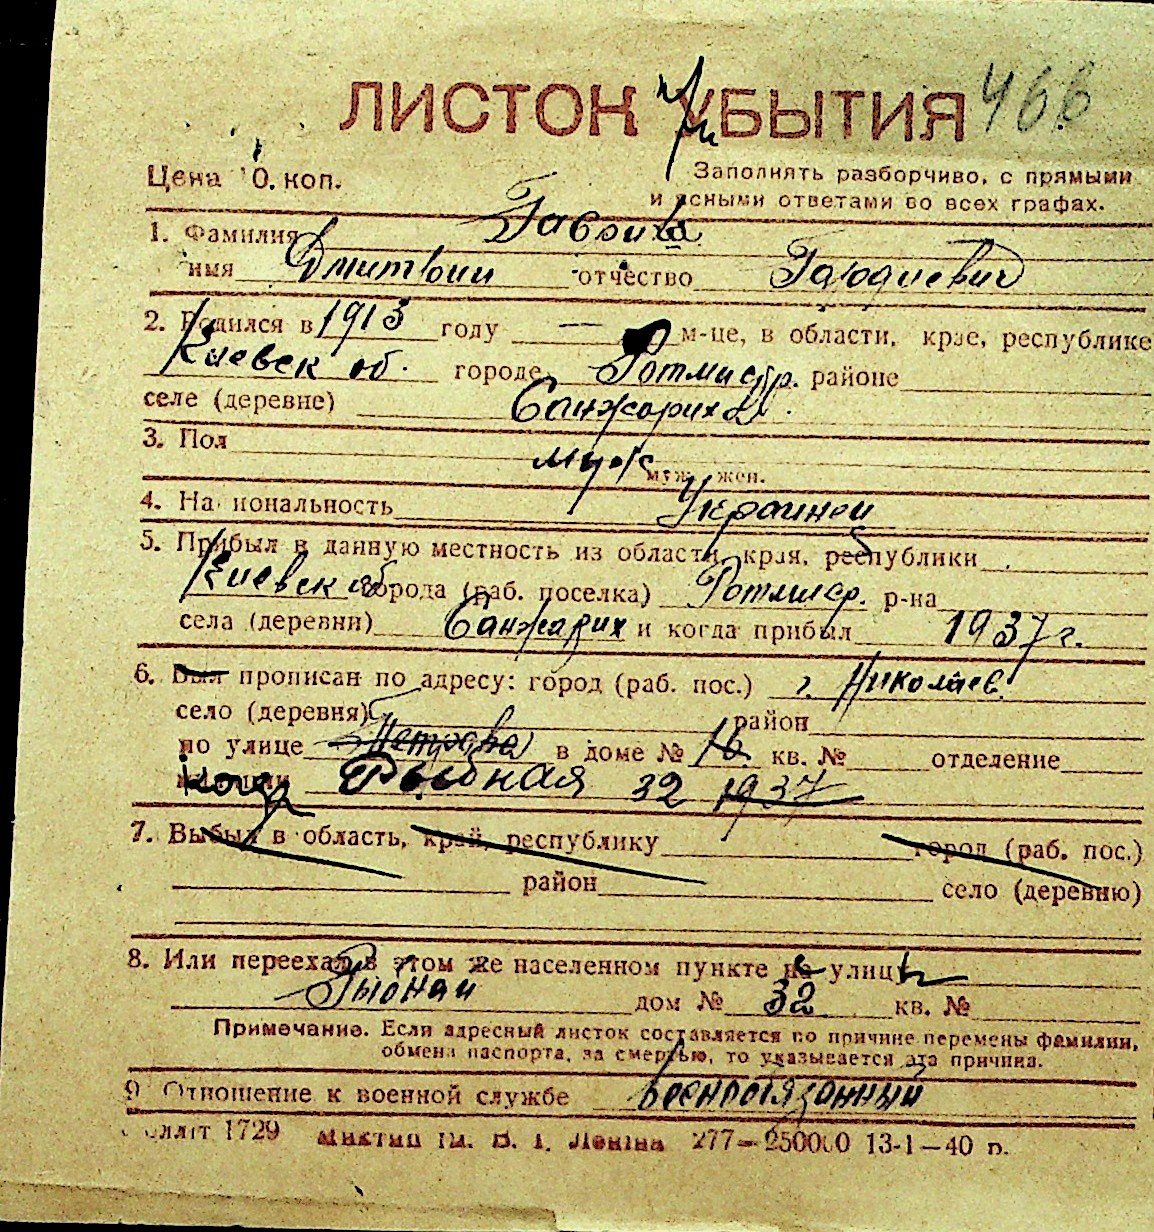 ЛИСТОК УБЫТИЯ 466
При
Цена 10. коп.
Заполнять разборчиво, с прямыми
и ясными ответами во всех графах.
1. Фамилия
имя Дмитрий отчество
2. Родился в 1913 году — м-це, в области, крае, республике
Киевск об. городе Ротмистр. районе
селе (деревне) Санжарих
3. Пол муж
муж. жен.
4. Национальность Украинец
5. Прибыл в данную местность из области, края, республики
Киевск об. города (раб. поселка) Ротмистр. р-на
села (деревни) Санжарих и когда прибыл 1937 г.
6. Был прописан по адресу: город (раб. пос.) г. Николаев.
село (деревня) район
по улице в доме № 16 кв. № отделение
милиции Рыбная 32 1937
когда
7. Выбыл в область, край, республику город (раб. пос.)
район село (деревню)
8. Или переехал в этом же населенном пункте на улицу
Рыбная дом № 32 кв. №
Примечание. Если адресный листок составляется по причине перемены фамилии,
обмена паспорта, за смертью, то указывается эта причина.
9 Отношение к военной службе Военнообязанный
1729 277—250000 13-1—40 р.